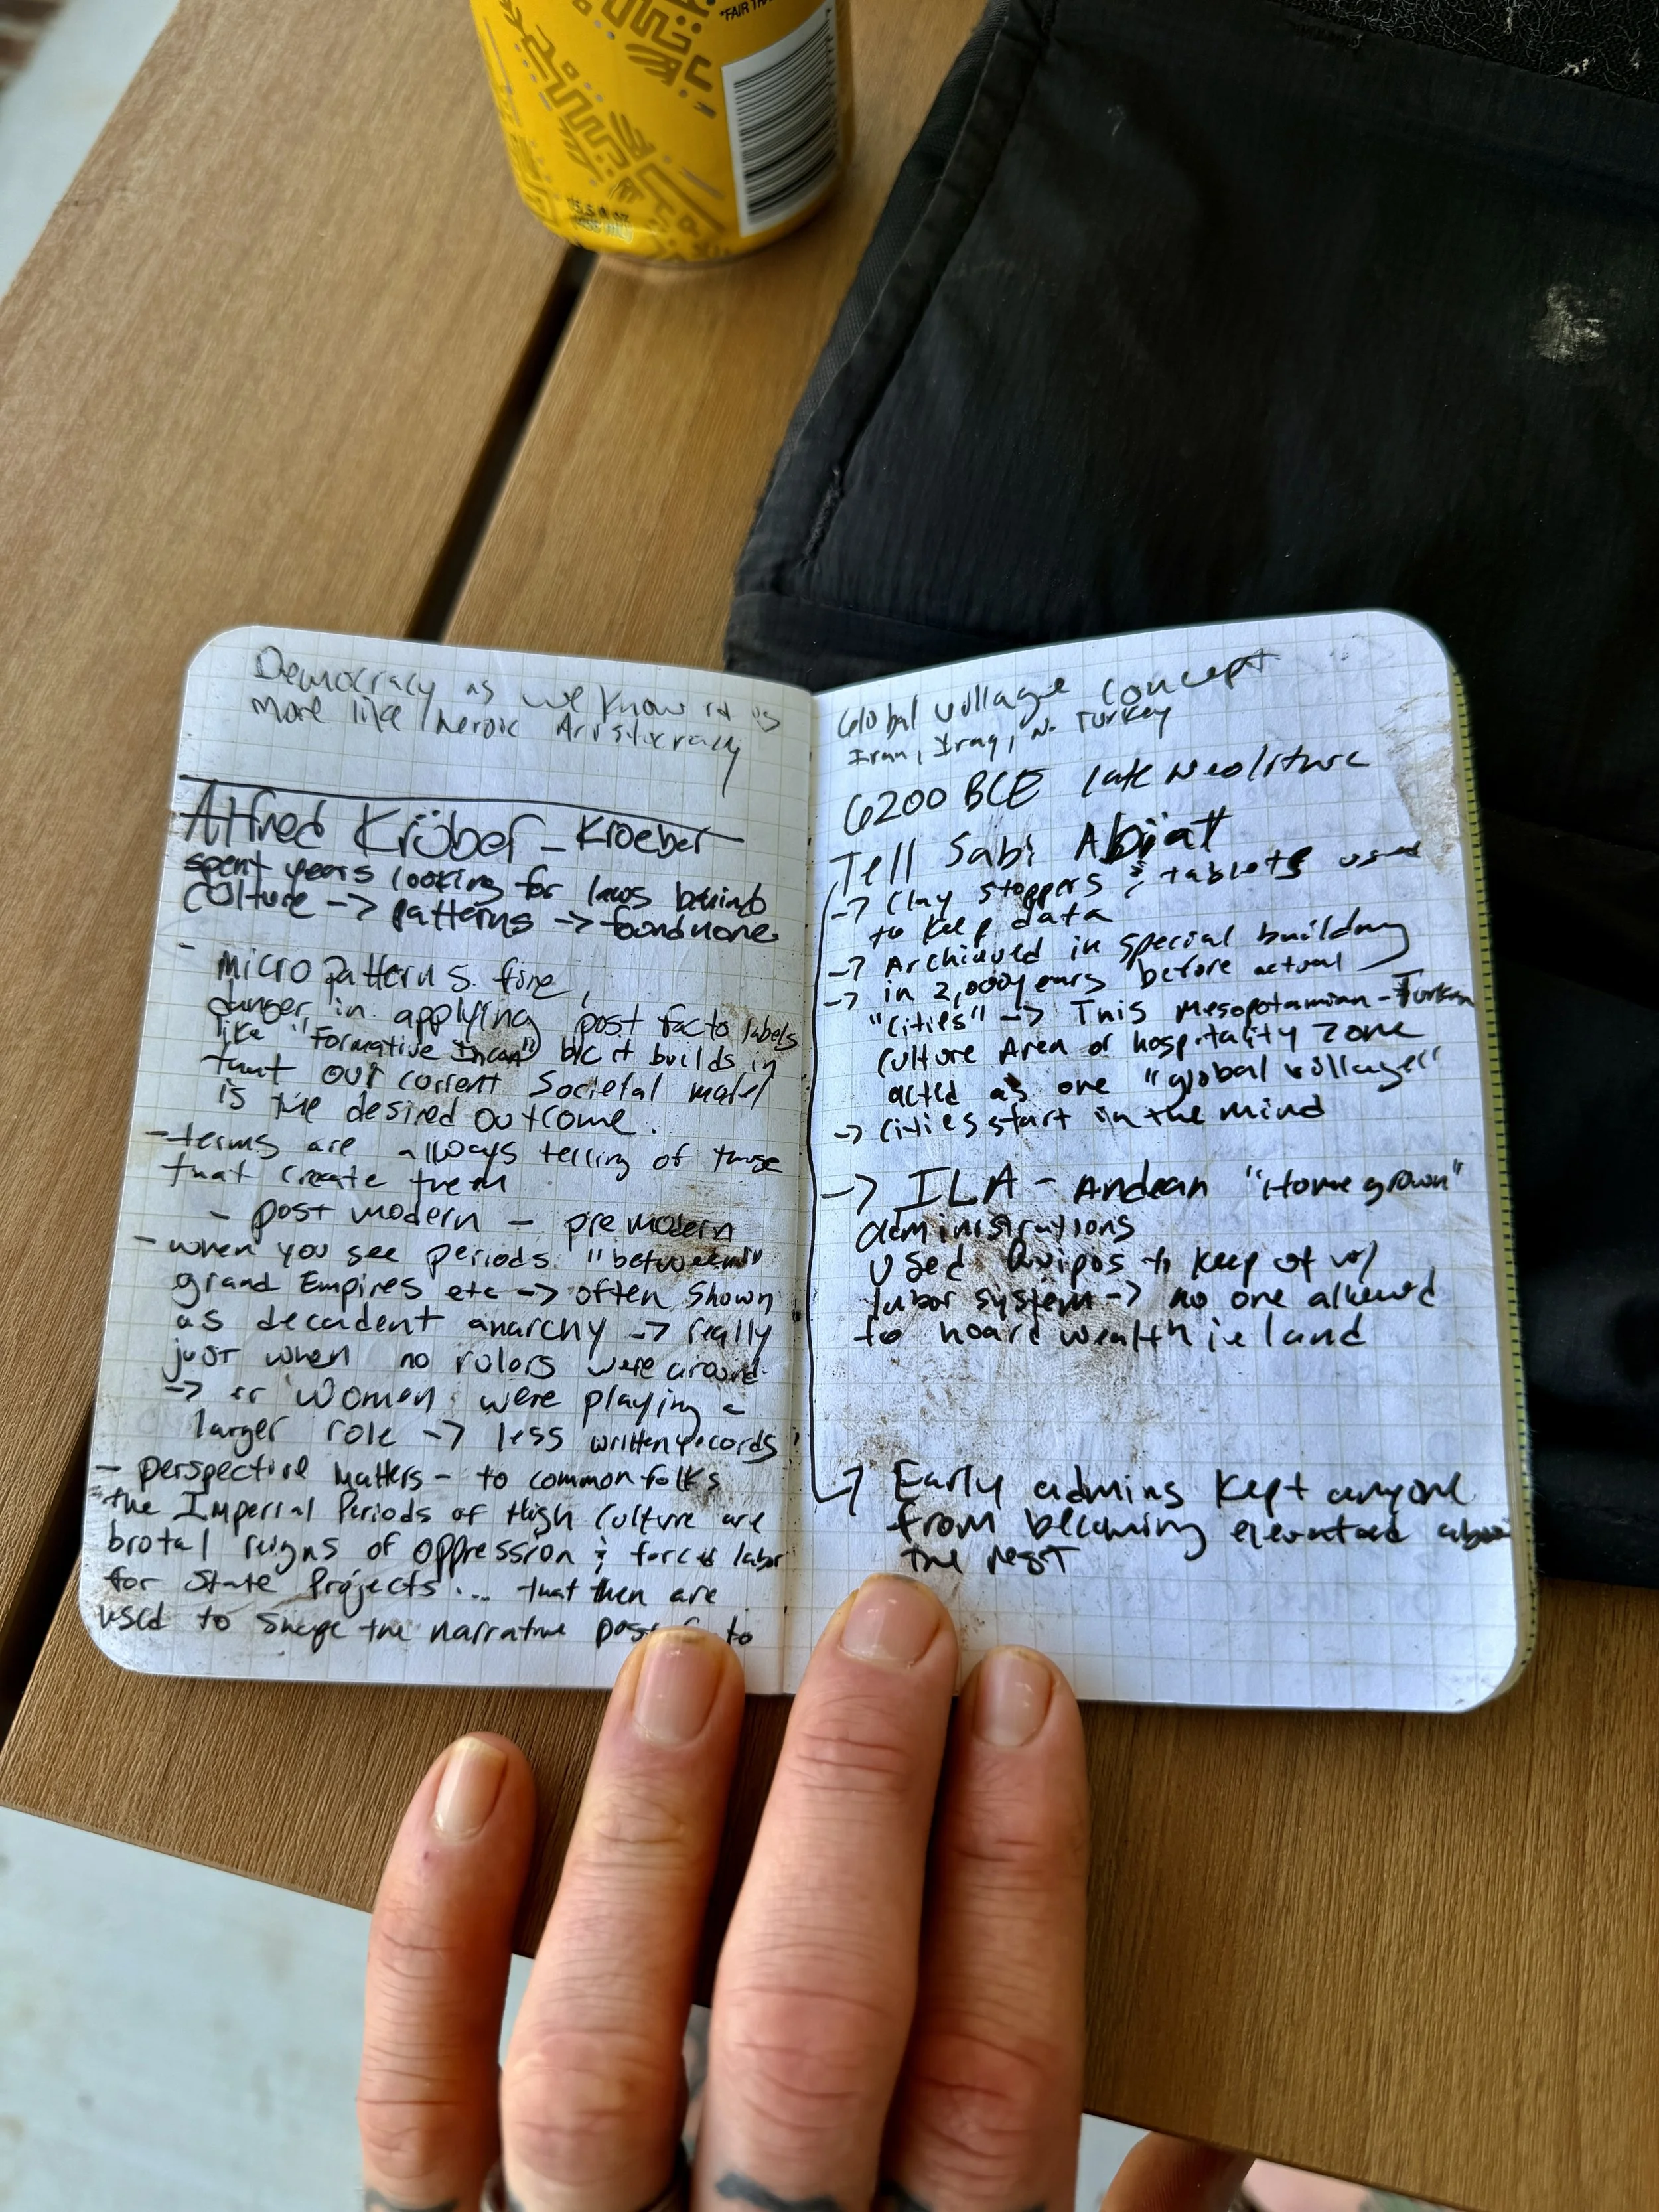 *FAIR TRA
15.5 fl oz
Democracy as we know it is
more like heroic Aristocracy
Alfred Krüber - Kroeber
spent years looking for laws behind
culture -> patterns -> found none
- micro patterns fine,
danger in applying post facto labels
like "Formative Incan" b/c it builds in
that our current societal model
is the desired outcome.
- terms are always telling of those
that create them
- post modern - pre modern
- when you see periods "between"
grand Empires etc -> often shown
as decadent anarchy -> really
just when no rulers were around
-> or women were playing a
larger role -> less written records
- perspective matters - to common folks
the Imperial Periods of High Culture are
brutal reigns of oppression & forced labor
for State Projects... that then are
used to shape the narrative post to
Global village concept
Iran, Iraq, N. Turkey
6200 BCE late Neoliture
Tell Sabi Abiat
-> Clay stoppers & tablets used
to keep data
-> Archieved in special building
-> in 2,000 years before actual
"cities" -> This Mesopotamian - Turkish
culture Area or hospitality zone
acted as one "global village"
-> cities start in the mind
-> ILA - Andean "Home grown"
administrations
used Quipos to keep of w/
labor system -> no one allowed
to hoard wealth ie land
-> Early admins kept anyone
from becoming elevated above
the rest